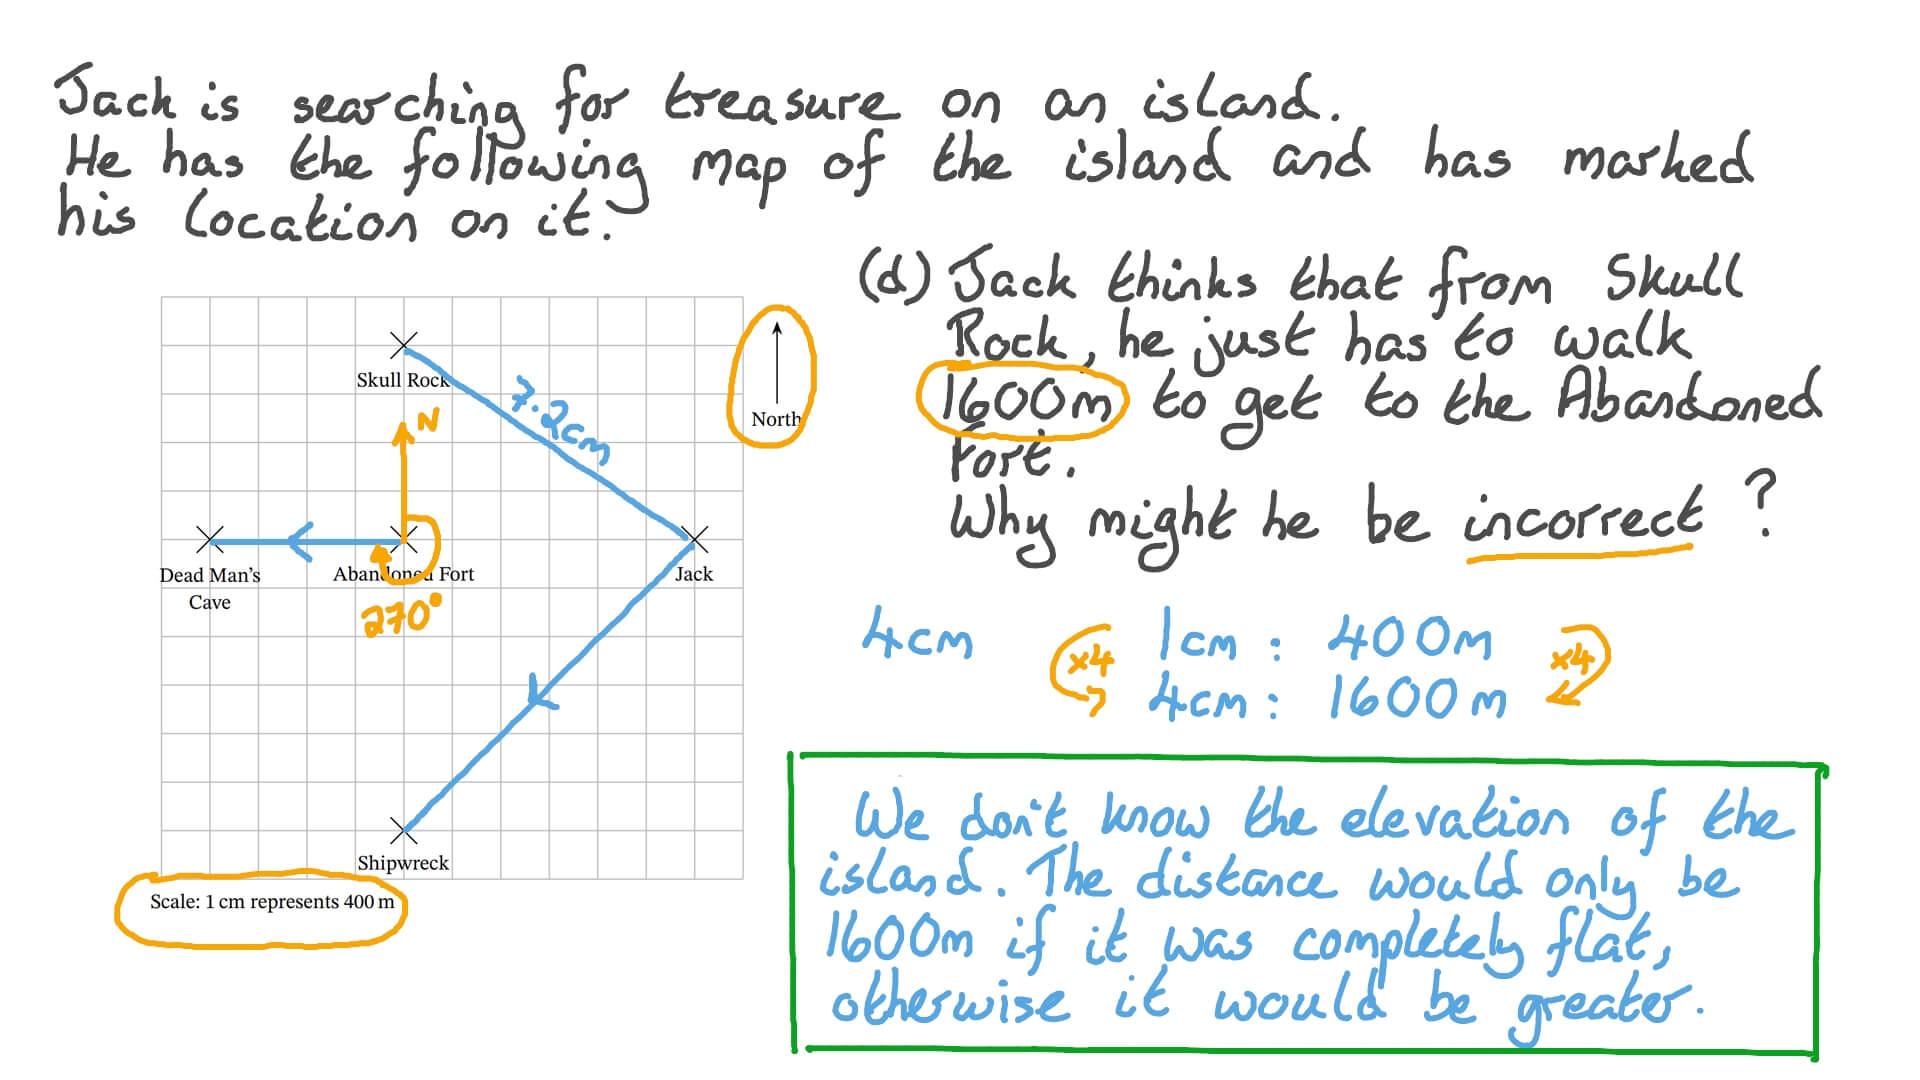 Jack is searching for treasure on an island.
He has the following map of the island and has marked
his location on it.
(d) Jack thinks that from Skull
Rock, he just has to walk
1600m to get to the Abandoned
Fort.
Why might he be incorrect?
Skull Rock
7.2cm
North
N
Dead Man's
Cave
Abandoned Fort
Jack
270°
Shipwreck
Scale: 1 cm represents 400 m
4cm
×4 1cm : 400m ×4
4cm : 1600m
We don't know the elevation of the
island. The distance would only be
1600m if it was completely flat,
otherwise it would be greater.